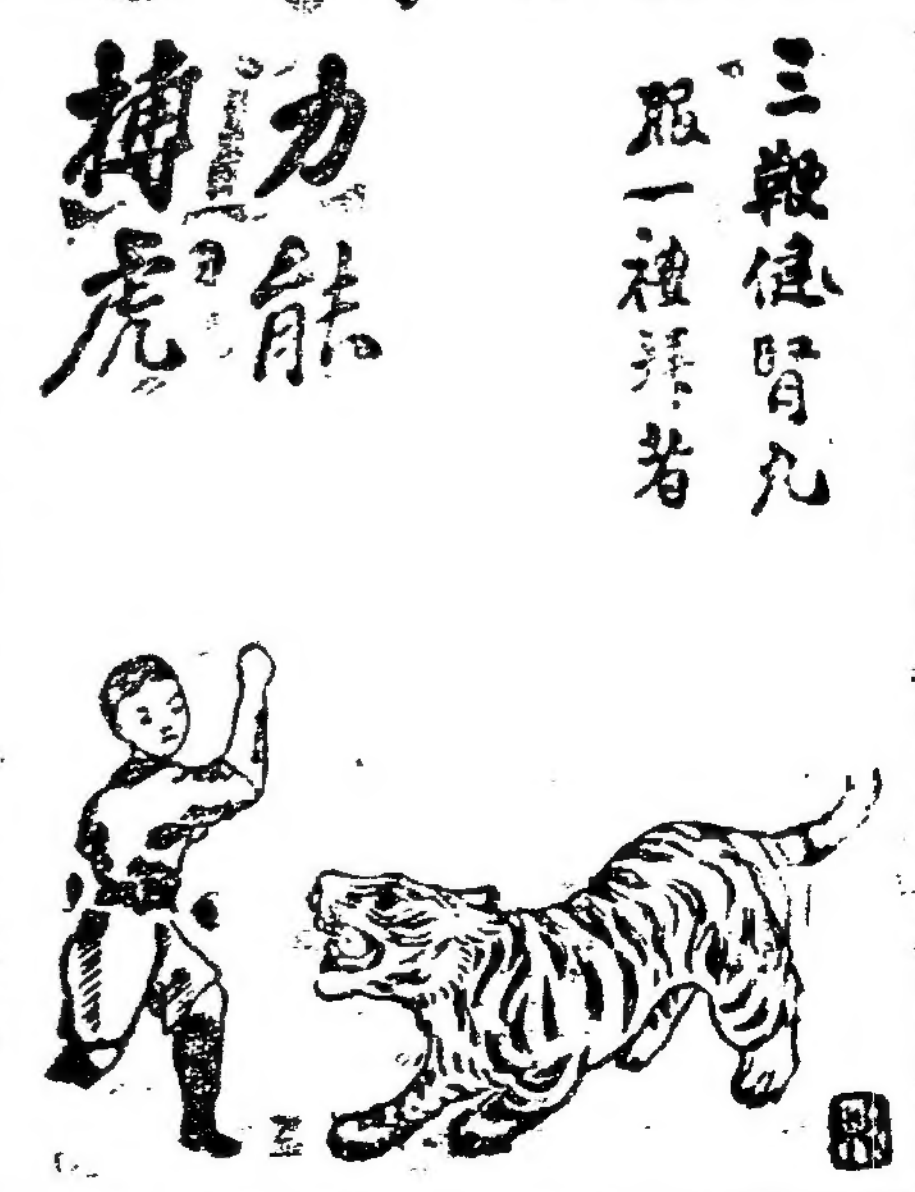 三鞭健腎丸
服一禮拜者
力能
搏虎